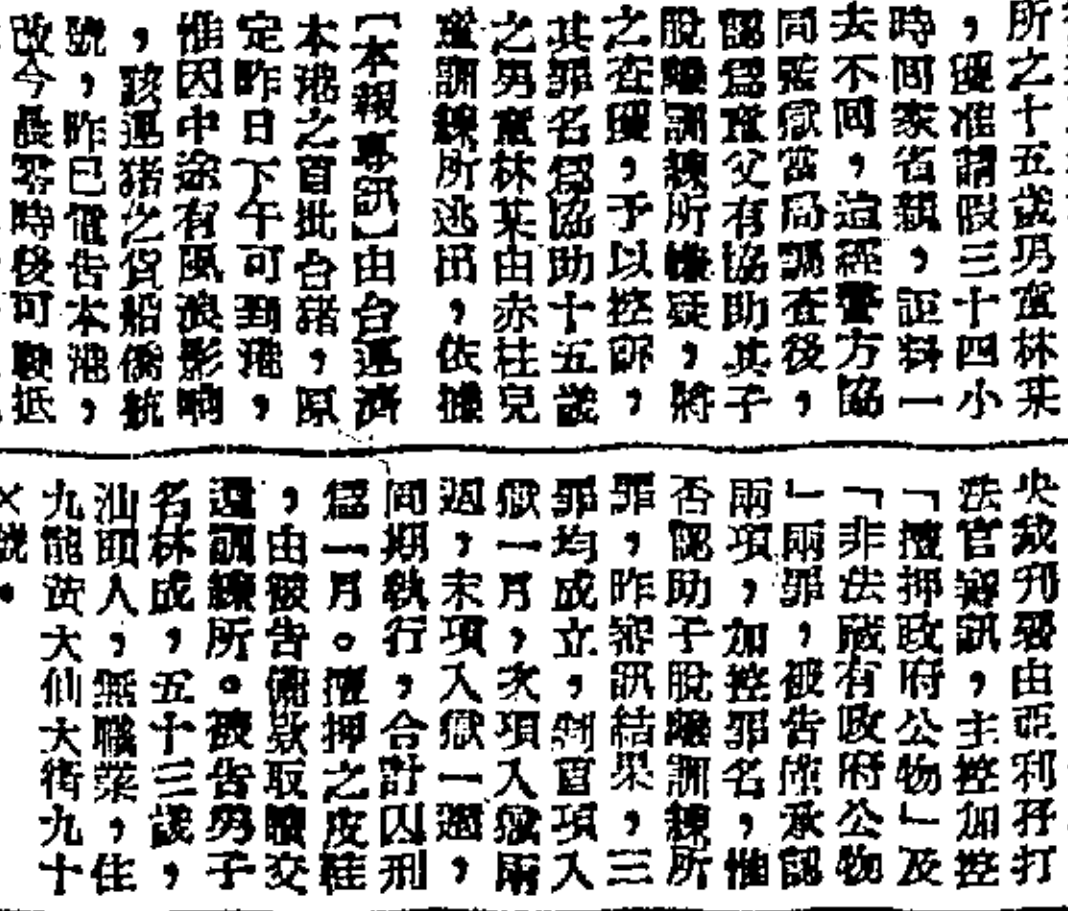 所之十五歲男童林某
，獲准請假三十四小
時回家省親，詎料一
去不回，這經警方協
同監獄當局調查後，
認爲童父有協助其子
脫離訓練所嫌疑，將
之查獲，予以控訴，
其罪名爲協助十五歲
之男童林某由赤柱兒
童訓練所逃出，依據
【本報專訊】由台運濟
本港之首批台豬，原
定昨日下午可到港，
惟因中途有風浪影响
，該運猪之貨船僑航
號，昨已電告本港，
改今晨零時後可駛抵
央裁判署由亞利孖打
法官審訊，主控加控
「擅押政府公物」及
「非法藏有政府公物
」兩罪，被告僅承認
兩項，加控罪名，惟
否認助子脫離訓練所
罪，昨審訊結果，三
罪均成立，判首項入
獄一月，次項入獄兩
週，末項入獄一週，
同期執行，合計囚刑
爲一月。擅押之皮鞋
，由被告備欵取贖交
還訓練所。被告男子
名林成，五十三歲，
汕頭人，無職業，住
九龍黃大仙大街九十
×號。